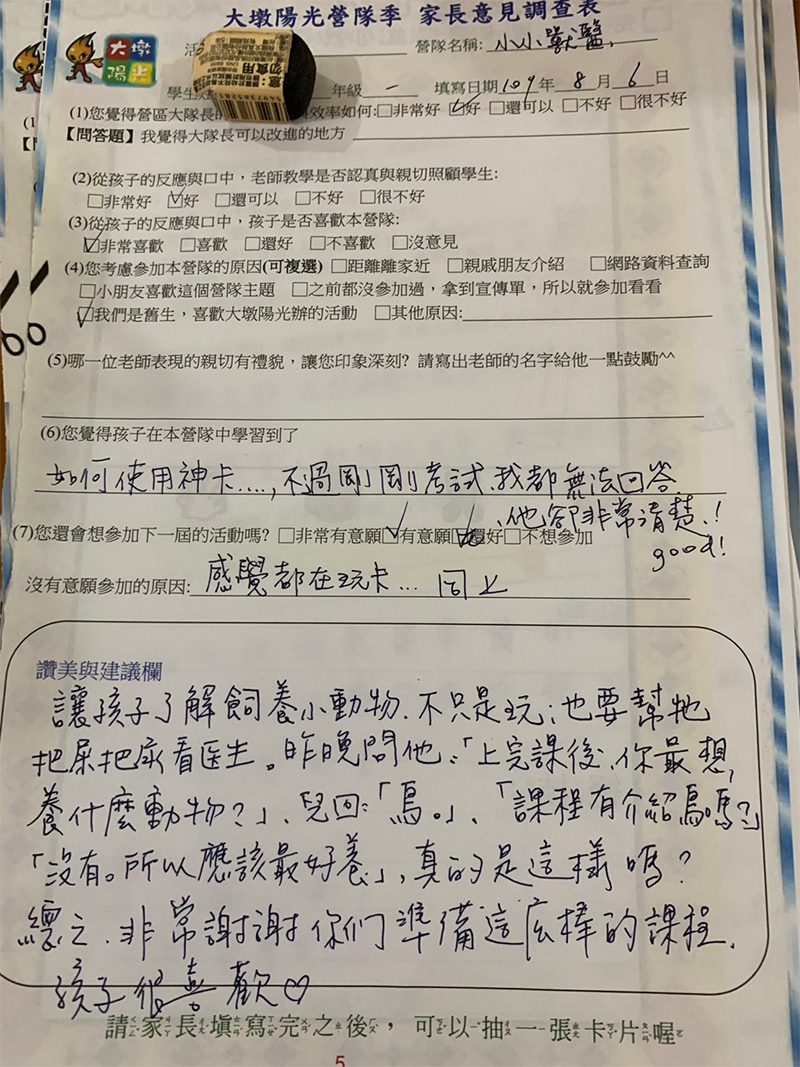 大墩陽光營隊季 家長意見調查表
大墩
陽光
營隊名稱: 小小獸醫
年級 一 填寫日期109年8月6日
勿食用
(1)您覺得營區大隊長的 效率如何:□非常好 ☑好 □還可以 □不好 □很不好
【問答題】我覺得大隊長可以改進的地方
(2)從孩子的反應與口中，老師教學是否認真與親切照顧學生:
□非常好 ☑好 □還可以 □不好 □很不好
(3)從孩子的反應與口中，孩子是否喜歡本營隊:
☑非常喜歡 □喜歡 □還好 □不喜歡 □沒意見
(4)您考慮參加本營隊的原因(可複選) □距離離家近 □親戚朋友介紹 □網路資料查詢
□小朋友喜歡這個營隊主題 □之前都沒參加過，拿到宣傳單，所以就參加看看
☑我們是舊生，喜歡大墩陽光辦的活動 □其他原因:
(5)哪一位老師表現的親切有禮貌，讓您印象深刻? 請寫出老師的名字給他一點鼓勵^^
(6)您覺得孩子在本營隊中學習到了
如何使用神卡....,不過剛剛考試、我都無法回答
、他卻非常清楚!
(7)您還會想參加下一屆的活動嗎? □非常有意願 ☑有意願 ☑還好 □不想參加
good!
沒有意願參加的原因: 感覺都在玩卡... 同上
讚美與建議欄
讓孩子了解飼養小動物、不只是玩；也要幫牠
把屎把尿看医生。昨晚問他:「上完課後、你最想
養什麼動物?」、兒回:「馬。」、「課程有介紹馬嗎?」
「沒有。所以應該最好養」,真的是這樣嗎?
總之、非常謝謝你们準備這麼棒的課程、
孩子很喜歡♡
請家長填寫完之後，可以抽一張卡片喔
5